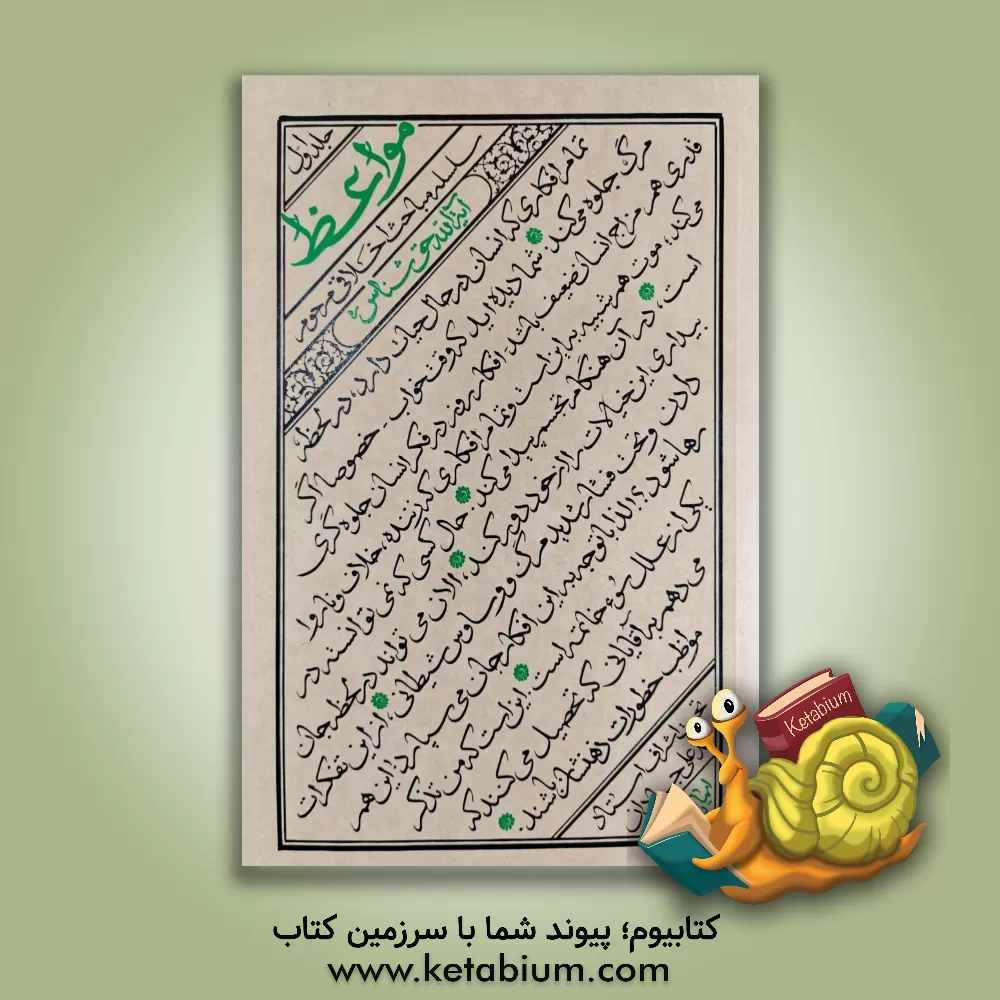 جلد اول
مواعظ
سلسله مباحث اخلاقی مرحوم
آیة الله حق شناس
تمام افکاری که انسان در حال حیات دارد، در لحظه
مرگ جلوه می‌کند. شما دیده اید که وقت خواب - خصوصا اگر
قدری هم مزاج انسان ضعیف باشد - افکار روز در فکر انسان جلوه گری
می‌کند، موت هم شبیه به این است و تمام افکاری که زننده، خلاف و ناروا
است، در آن هنگام تجسم پیدا می‌کند. حال کسی که نمی توانسته در
بیداری این خیالات را از خود دور کند، الان می تواند در لحظه جان
دادن و تحت فشار شدید مرگ و وساوس شیطانی، از این تفکرات
رها شود؟! لذا با توجه به این افکار جان می سپارد! این هم
یکی از علل سوء خاتمه است. این است که من تذکر
می دهم به آقایانی که تحصیل می کنند که
مواظب خطورات ذهنشان باشند.
اشراف استاد
Ketabium
کتابیوم؛ پیوند شما با سرزمین کتاب
www.ketabium.com